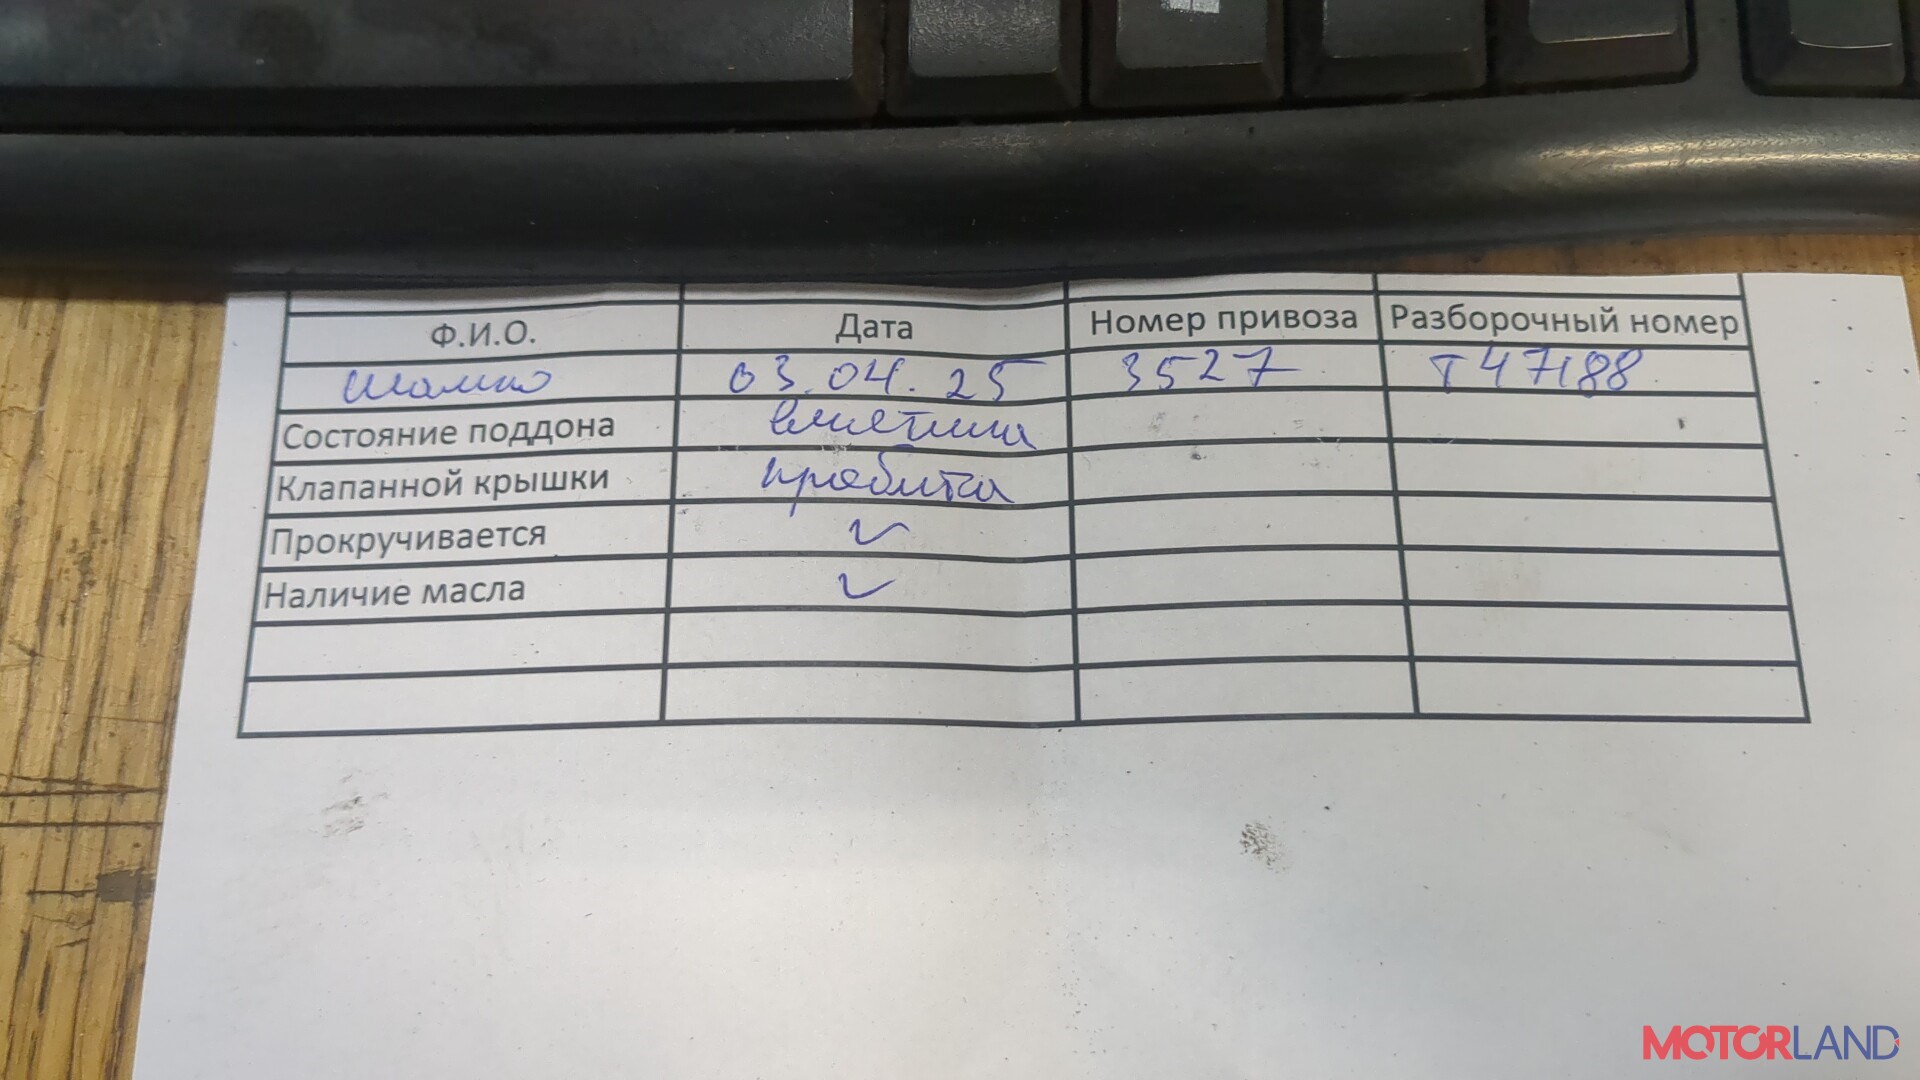 Ф.И.О. Дата Номер привоза Разборочный номер
03.04.25 3527 Т47188
Состояние поддона вмятина
Клапанной крышки пробита
Прокручивается ✓
Наличие масла ✓
MOTORLAND